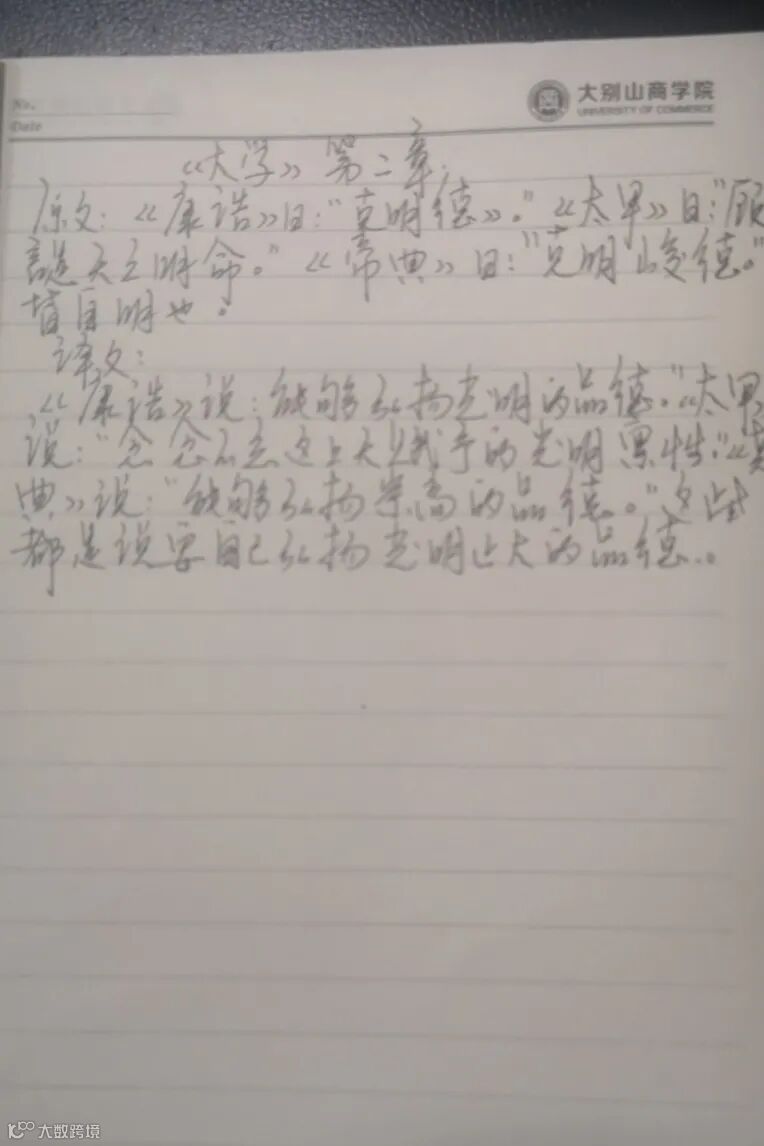 No.
Date
大别山商学院
UNIVERSITY OF COMMERCE
《大学》第二章
原文:《康诰》曰:"克明德》。"《太甲》曰:"顾
諟天之明命。"《帝典》曰:"克明峻德。"
皆自明也。
译文:
《康诰》说:能够弘扬光明的品德。"《太甲》
说:"念念不忘这上天赋予的光明禀性。"《
典》说:"能够弘扬崇高的品德。"这些
都是说要自己弘扬光明正大的品德。
大数跨境